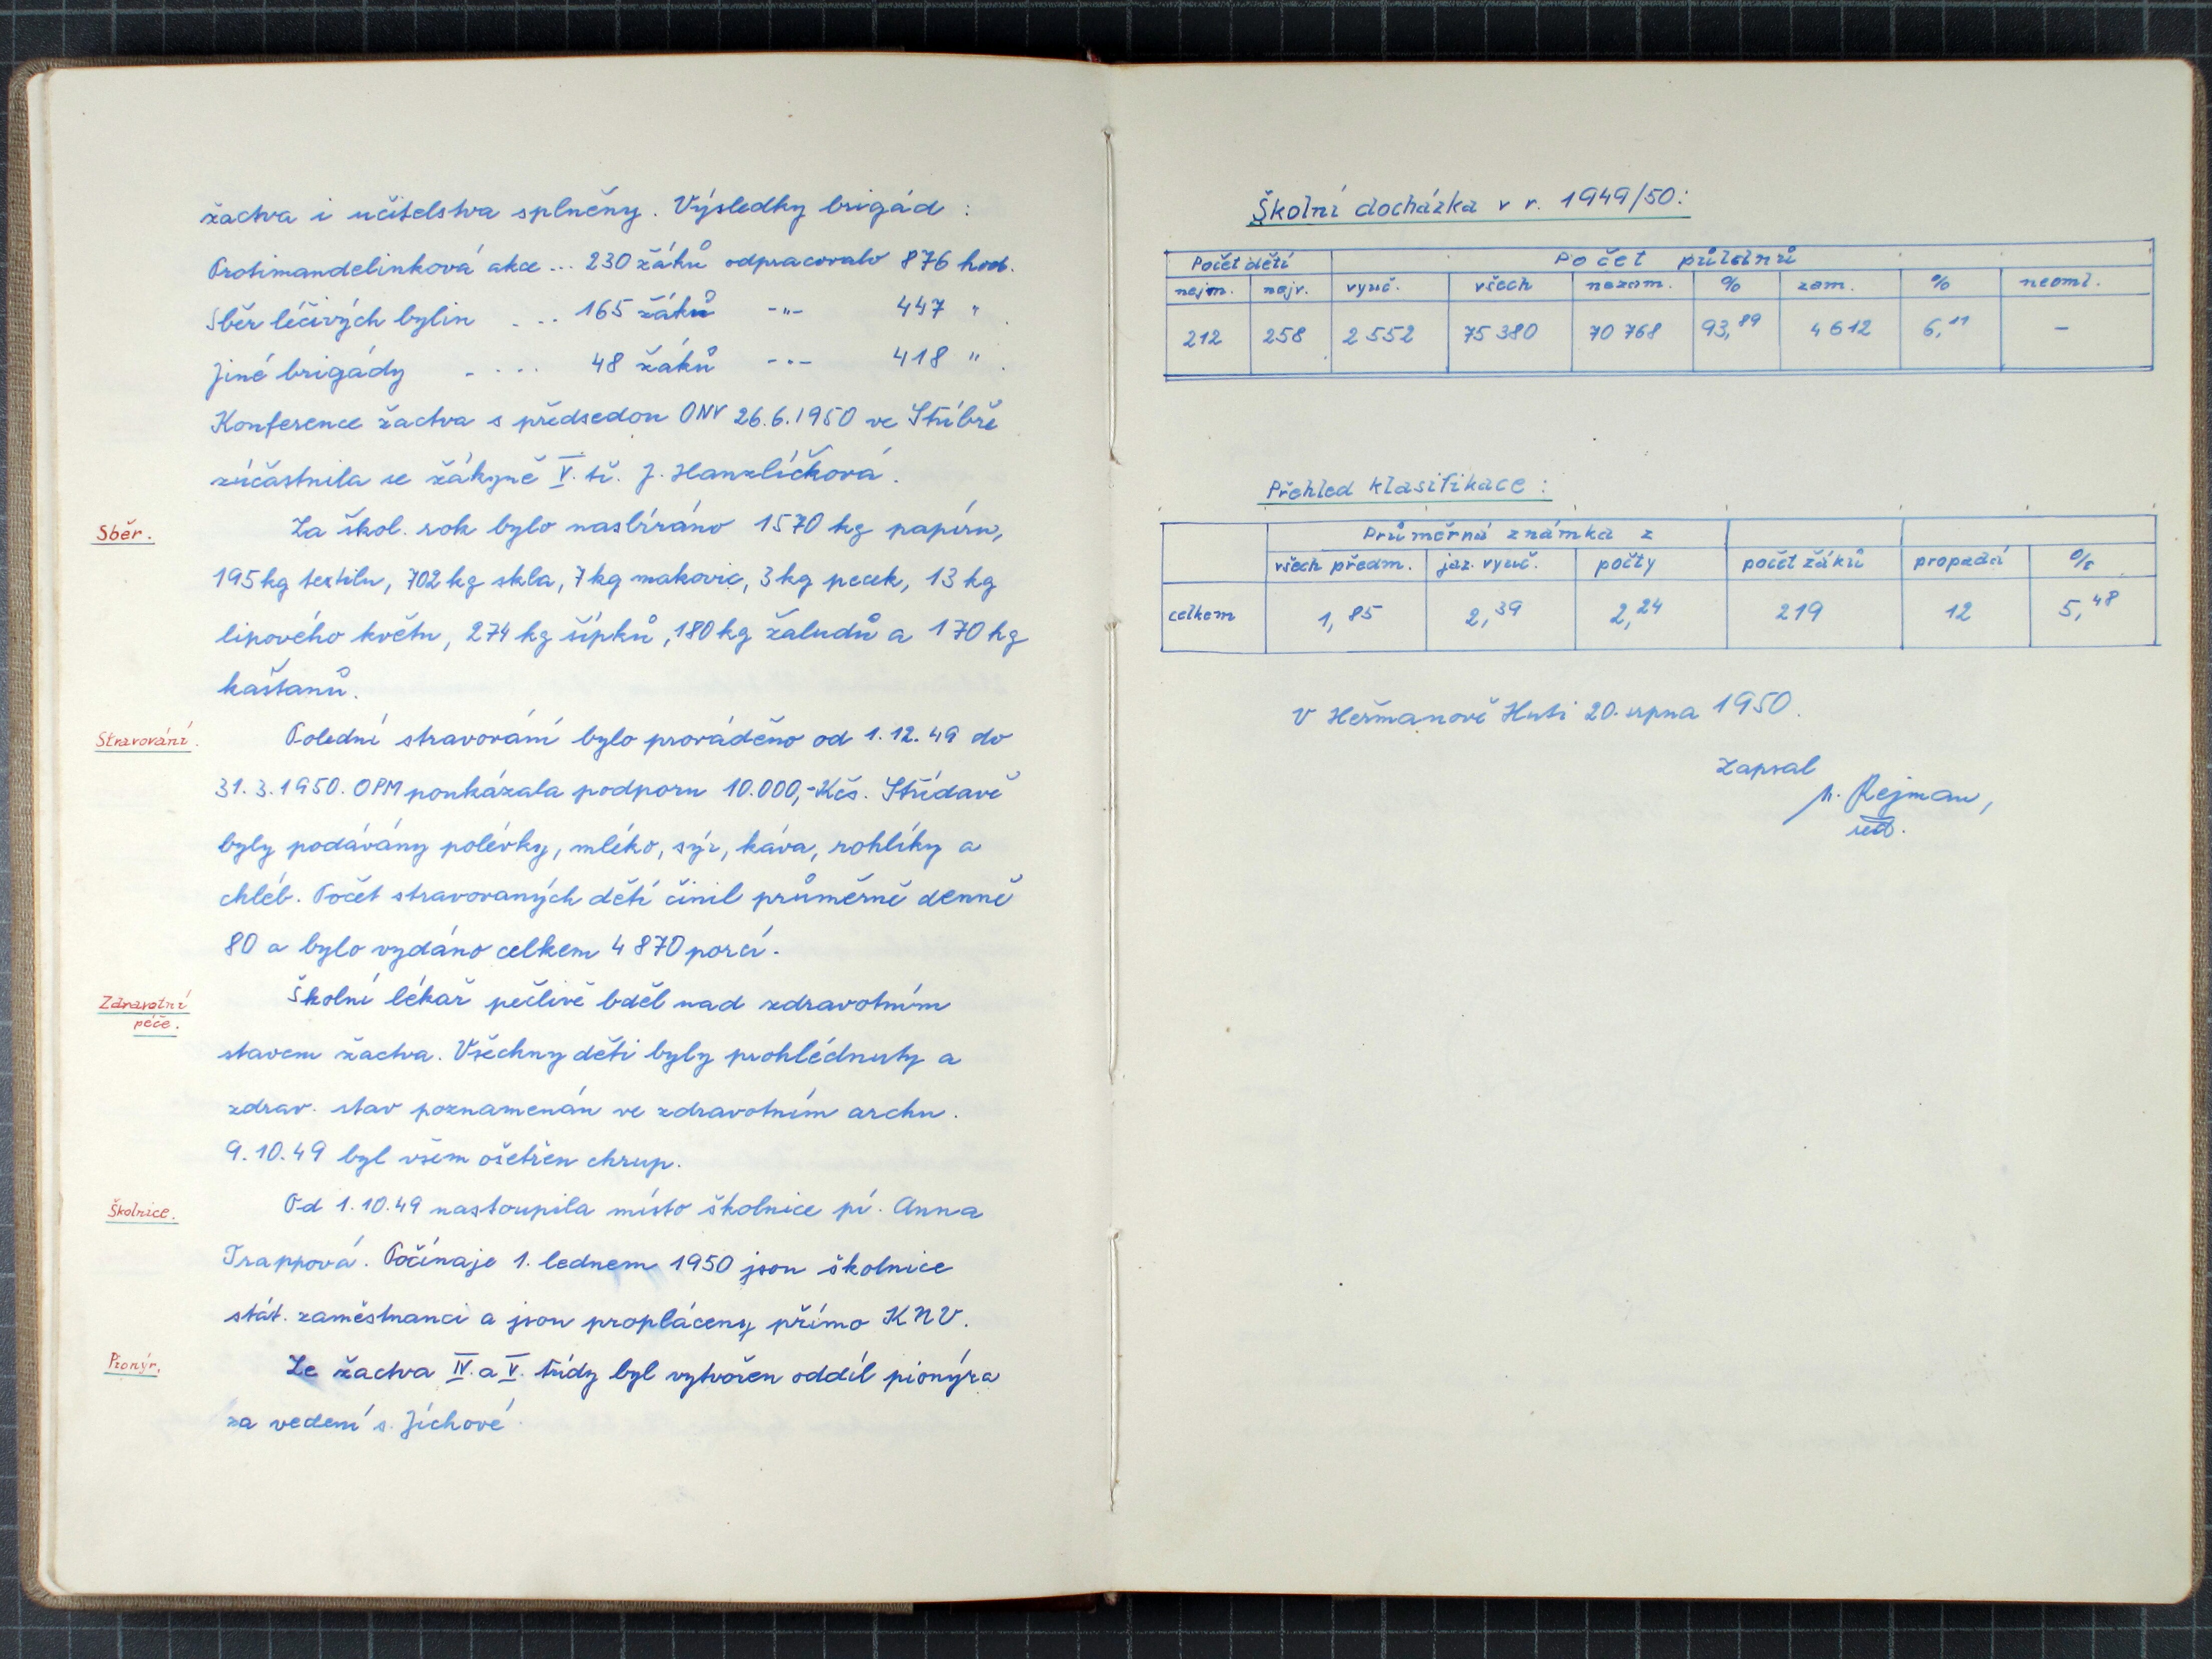 žactva i učitelstva splněny. Výsledky brigád :
Protimandelinková akce ... 230 žáků odpracovalo 876 hod.
Sběr léčivých bylin ... 165 žáků -"- 447 " .
Jiné brigády .... 48 žáků -"- 418 " .
Konference žactva s předsedou ONV 26.6.1950 ve Stříbře
zúčastnila se žákyně V. tř. J. Hanzlíčková.
Sběr.
Za škol. rok bylo nasbíráno 1570 kg papíru,
195 kg textilu, 702 kg skla, 7 kg makovic, 3 kg pecek, 13 kg
lipového květu, 274 kg šípků, 180 kg žaludů a 170 kg
kaštanů.
Stravování.
Polední stravování bylo prováděno od 1.12.49 do
31.3.1950. OPM poukázala podporu 10.000,-Kčs. Střídavě
byly podávány polévky, mléko, sýr, káva, rohlíky a
chléb. Počet stravovaných dětí činil průměrně denně
80 a bylo vydáno celkem 4 870 porcí.
Zdravotní
péče.
Školní lékař pečlivě bděl nad zdravotním
stavem žactva. Všechny děti byly prohlédnuty a
zdrav. stav poznamenán ve zdravotním archu.
9.10.49 byl všem ošetřen chrup.
Školnice.
Od 1.10.49 nastoupila místo školnice pí. Anna
Trappová. Počínaje 1. lednem 1950 jsou školnice
stát. zaměstnanci a jsou propláceny přímo KNV.
Pionýr.
Ze žactva IV. a V. třídy byl vytvořen oddíl pionýra
za vedení s. Jíchové.
Školní docházka v r. 1949/50:
Počet dětí Počet půldnů
nejm. nejv. vyuč. všech nezam. % zam. % neoml.
212 258 2 552 75 380 70 768 93,89 4 612 6,11 –
Přehled klasifikace :
Průměrná známka z
všech předm. jaz. vyuč. počty počet žáků propadá %
celkem 1,85 2,39 2,24 219 12 5,48
V Heřmanově Huti 20. srpna 1950.
Zapsal
Rejman,